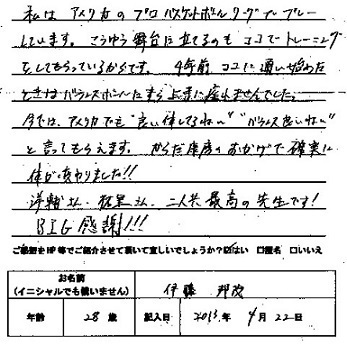 私は アメリカの プロ バスケットボール リーグ で プレー
しています。こうゆう舞台に立てるのも ココで トレーニング
をしてもらっているからです。4年前 ココに 通い始めた
ときは バランスボールにすら 上手に 座れませんでした。
今では、アメリカでも "良い体してるねぃ" "バランス良いねぃ"
と 言ってもらえます。からだ庫屋の おかげで 確実に
体が変わりました!!
洋輔さん、 さん、二人共 最高の 先生です!
BIG 感謝!!!
ご感想をHP等でご紹介させて頂いて宜しいでしょうか?☑はい □匿名 □いいえ
お名前
(イニシャルでも構いません) 伊藤
年齢 28 歳 記入日 2013 年 4 月 22 日